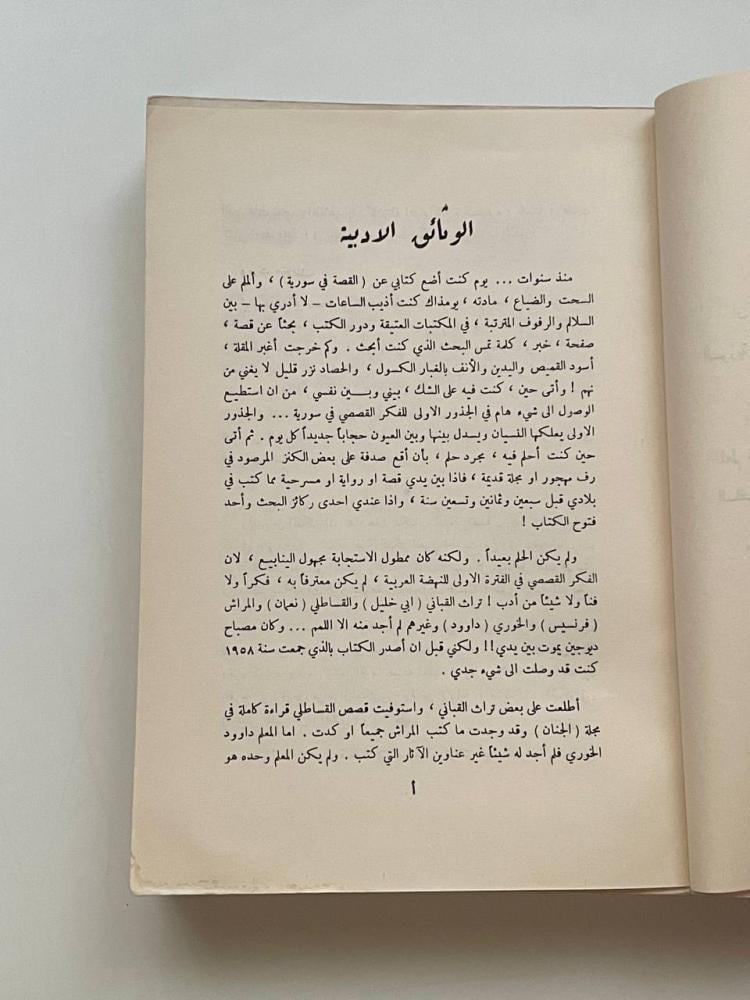 الوثائق الادبية
منذ سنوات ... يوم كنت أضع كتابي عن ( القصة في سورية ) ، وألملم على
السحت والضياع ، مادته ، يومذاك كنت أذيب الساعات – لا أدري بها – بين
السلالم والرفوف المتربة ، في المكتبات العتيقة ودور الكتب ، بحثاً عن قصة ،
صفحة ، خبر ، كلمة تمس البحث الذي كنت أبحث . وكم خرجت أغبر المقلة ،
أسود القميص واليدين والأنف بالغبار الكسول ، والحصاد نزر قليل لا يغني من
نهم ! وأتى حين ، كنت فيه على الشك ، بيني وبين نفسي ، من ان استطيع
الوصول الى شيء هام في الجذور الاولى للفكر القصصي في سورية ... والجذور
الاولى يعلكها النسيان ويسدل بينها وبين العيون حجاباً جديداً كل يوم . ثم أتى
حين كنت أحلم فيه ، مجرد حلم ، بأن أقع صدفة على بعض الكنز المرصود في
رف مهجور او مجلة قديمة ، فاذا بين يدي قصة او رواية او مسرحية مما كتب في
بلادي قبل سبعين وثمانين وتسعين سنة ، واذا عندي احدى ركائز البحث وأحد
فتوح الكتاب !
ولم يكن الحلم بعيداً . ولكنه كان ممطول الاستجابة مجهول الينابيع ، لان
الفكر القصصي في الفترة الاولى للنهضة العربية ، لم يكن معترفاً به ، فكراً ولا
فناً ولا شيئاً من أدب ! تراث القباني ( ابي خليل ) والقساطلي ( نعمان ) والمراش
( فرنسيس ) والخوري ( داوود ) وغيرهم لم أجد منه الا اللمم ... وكان مصباح
ديوجين يموت بين يدي!! ولكني قبل ان أصدر الكتاب بالذي جمعت سنة ١٩٥٨
كنت قد وصلت الى شيء جدي .
أطلعت على بعض تراث القباني ، واستوفيت قصص القساطلي قراءة كاملة في
مجلة ( الجنان ) وقد وجدت ما كتب المراش جميعاً او كدت . اما المعلم داوود
الخوري فلم أجد له شيئاً غير عناوين الآثار التي كتب . ولم يكن المعلم وحده هو
أ